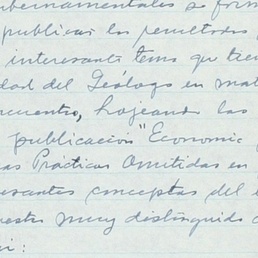 bernamentales se for
publicar los resultados
interesante tema que tien
dad del Geólogo en mat
cuentro, hojeando las
publicacion "Economic
as Prácticas Omitidas en
esantes conceptos del
estro muy distinguido
i: